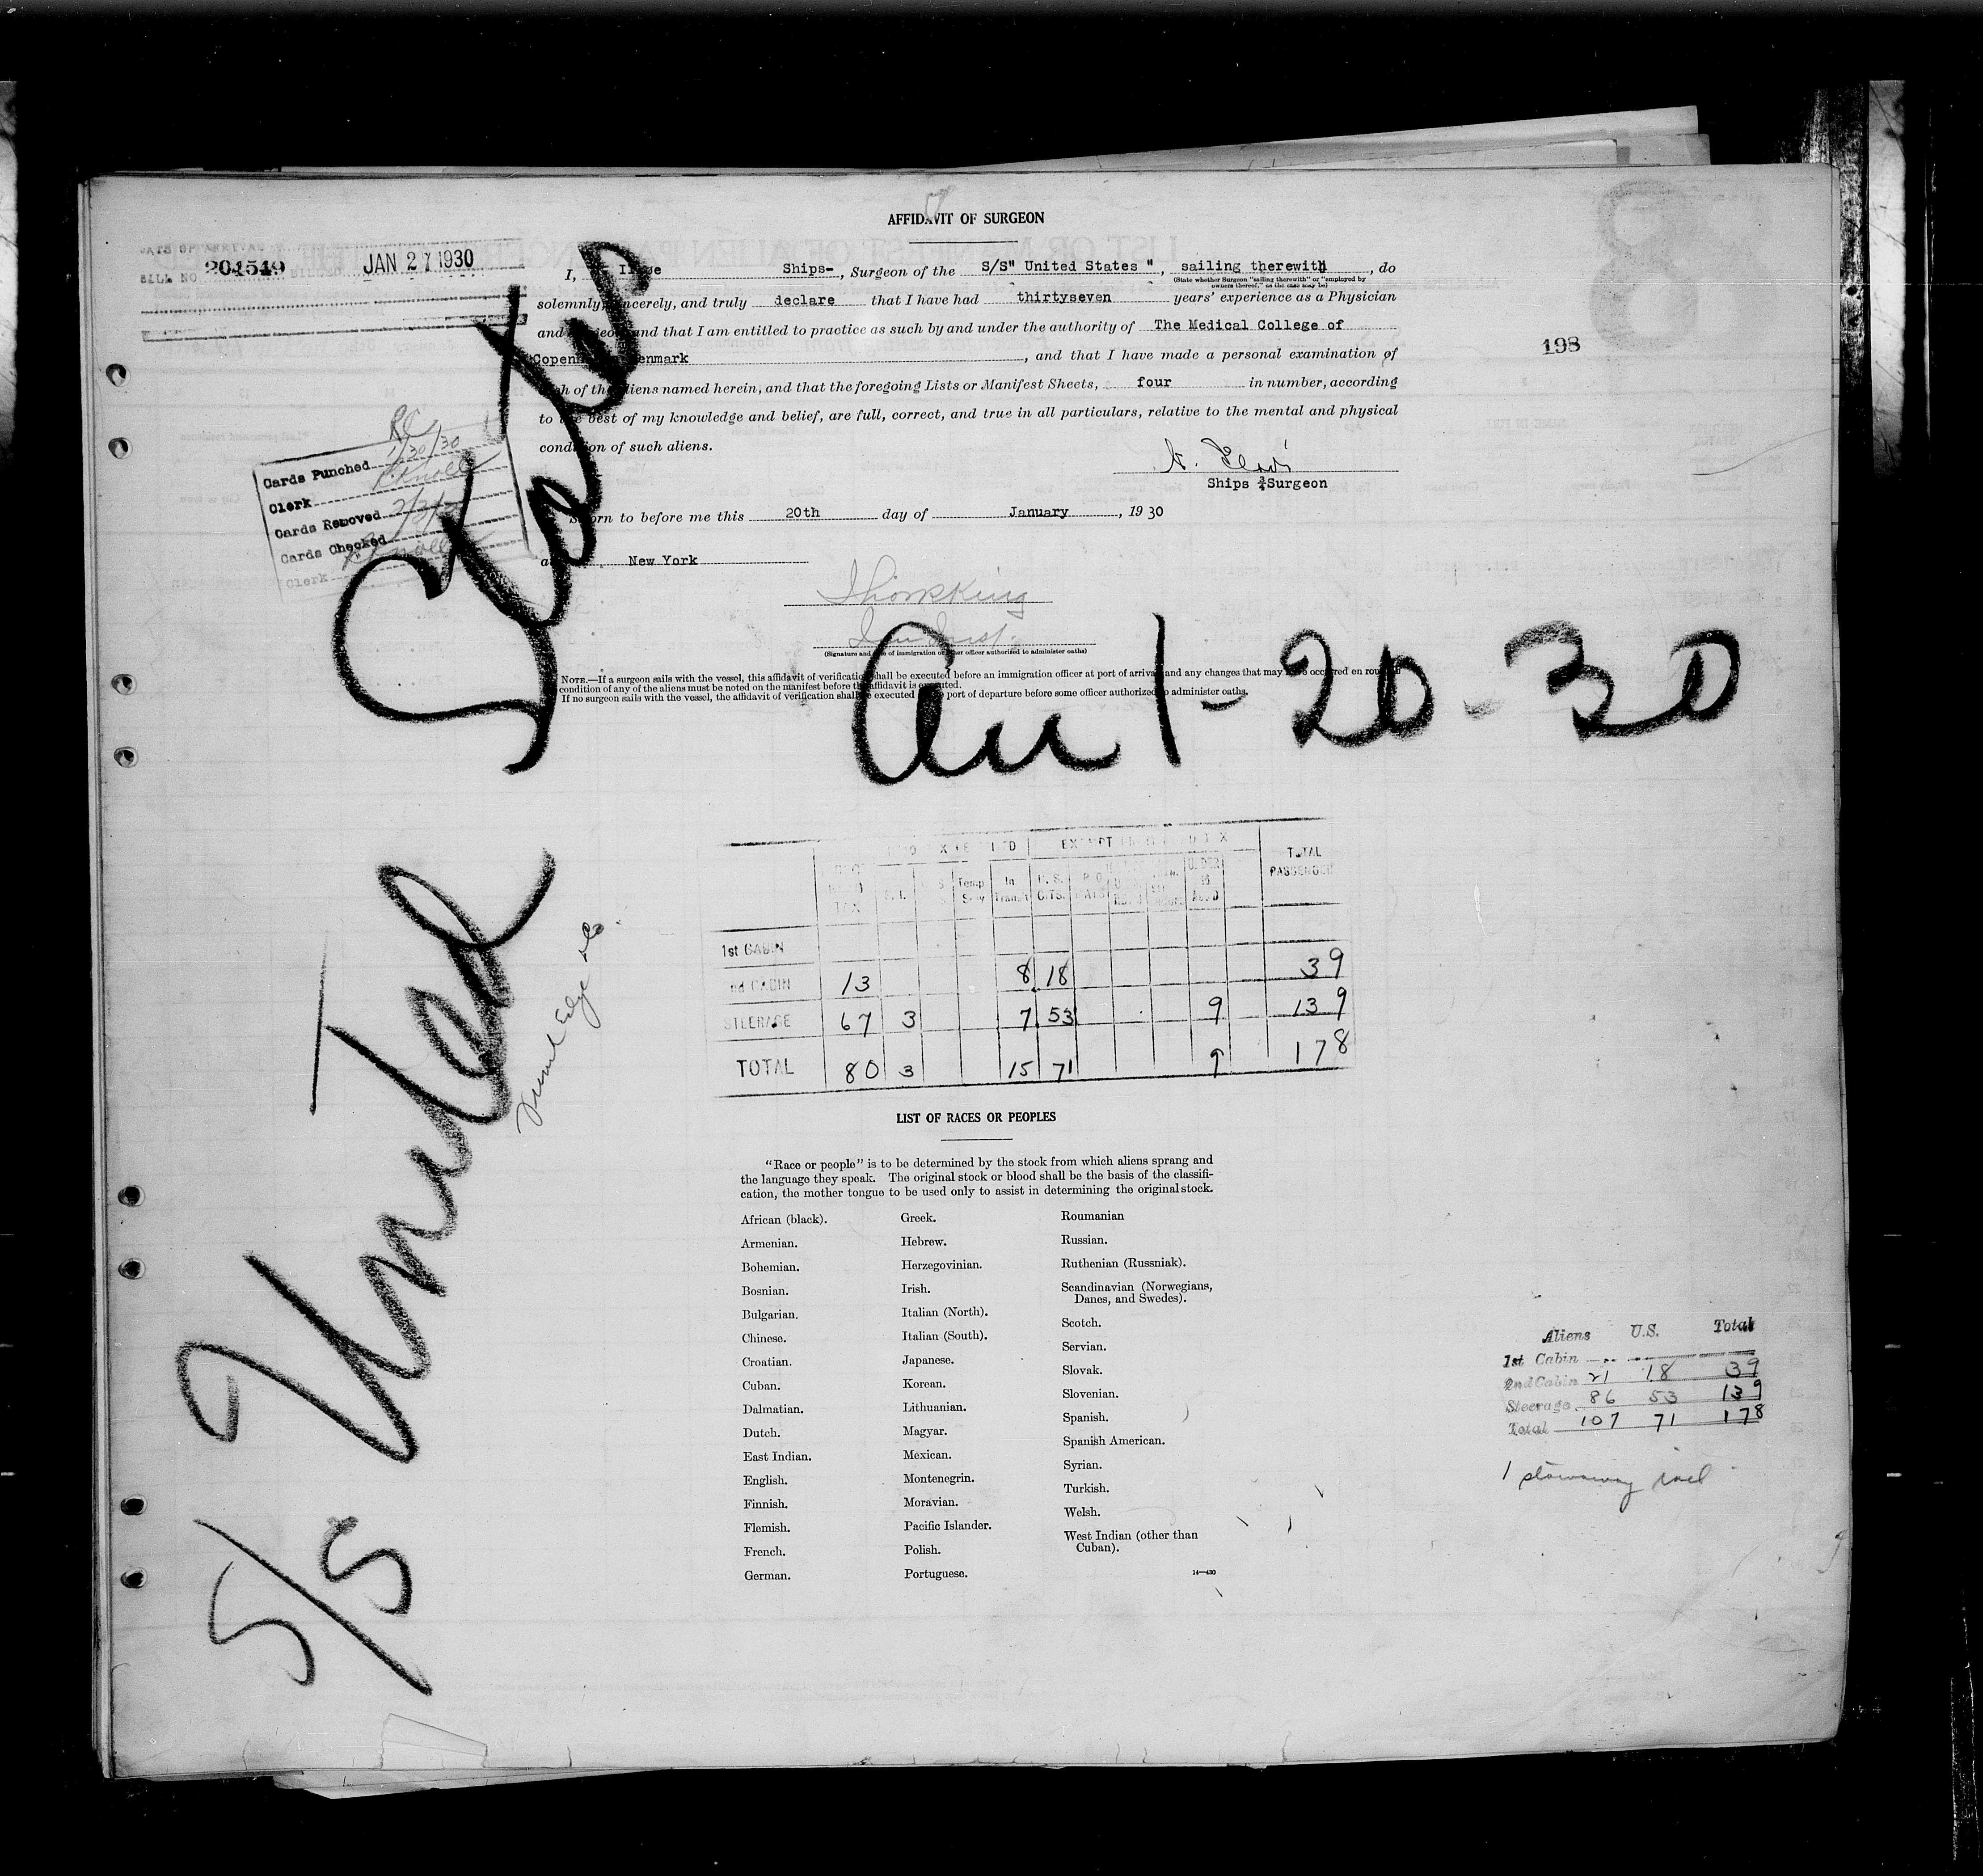 AFFIDAVIT OF SURGEON
204549 JAN 27 1930
BILL NO
I, Ships-, Surgeon of the S/S" United States ", sailing therewith, do
(State whether Surgeon "sailing therewith" or "employed by
owners thereof," as the case may be)
solemnly, sincerely, and truly declare that I have had thirtyseven years' experience as a Physician
and Surgeon and that I am entitled to practice as such by and under the authority of The Medical College of
Copenhagen Denmark, and that I have made a personal examination of
each of the aliens named herein, and that the foregoing Lists or Manifest Sheets, four in number, according
to the best of my knowledge and belief, are full, correct, and true in all particulars, relative to the mental and physical
condition of such aliens.
Ships Surgeon
Sworn to before me this 20th day of January, 1930
at New York
(Signature and title of immigration or other officer authorized to administer oaths)
NOTE.—If a surgeon sails with the vessel, this affidavit of verification shall be executed before an immigration officer at port of arrival and any changes that may have occurred en route in
condition of any of the aliens must be noted on the manifest before the affidavit is executed.
If no surgeon sails with the vessel, the affidavit of verification shall be executed at the port of departure before some officer authorized to administer oaths.
198
Cards Punched 1/30/30
Clerk
Cards Removed
Cards Checked
Clerk
S/S United States
Arr 1-20-30
Temp In Transit U.S. CITS. UNDER 16 TOTAL PASSENGERS
1st CABIN
2nd CABIN 13 8 18 39
STEERAGE 67 3 7 53 9 139
TOTAL 80 3 15 71 9 178
LIST OF RACES OR PEOPLES
"Race or people" is to be determined by the stock from which aliens sprang and
the language they speak. The original stock or blood shall be the basis of the classifi-
cation, the mother tongue to be used only to assist in determining the original stock.
African (black).
Armenian.
Bohemian.
Bosnian.
Bulgarian.
Chinese.
Croatian.
Cuban.
Dalmatian.
Dutch.
East Indian.
English.
Finnish.
Flemish.
French.
German.
Greek.
Hebrew.
Herzegovinian.
Irish.
Italian (North).
Italian (South).
Japanese.
Korean.
Lithuanian.
Magyar.
Mexican.
Montenegrin.
Moravian.
Pacific Islander.
Polish.
Portuguese.
Roumanian
Russian.
Ruthenian (Russniak).
Scandinavian (Norwegians,
Danes, and Swedes).
Scotch.
Servian.
Slovak.
Slovenian.
Spanish.
Spanish American.
Syrian.
Turkish.
Welsh.
West Indian (other than
Cuban).
14—430
Aliens U.S. Total
1st Cabin
2nd Cabin 21 18 39
Steerage 86 53 139
Total 107 71 178
1 stowaway incl